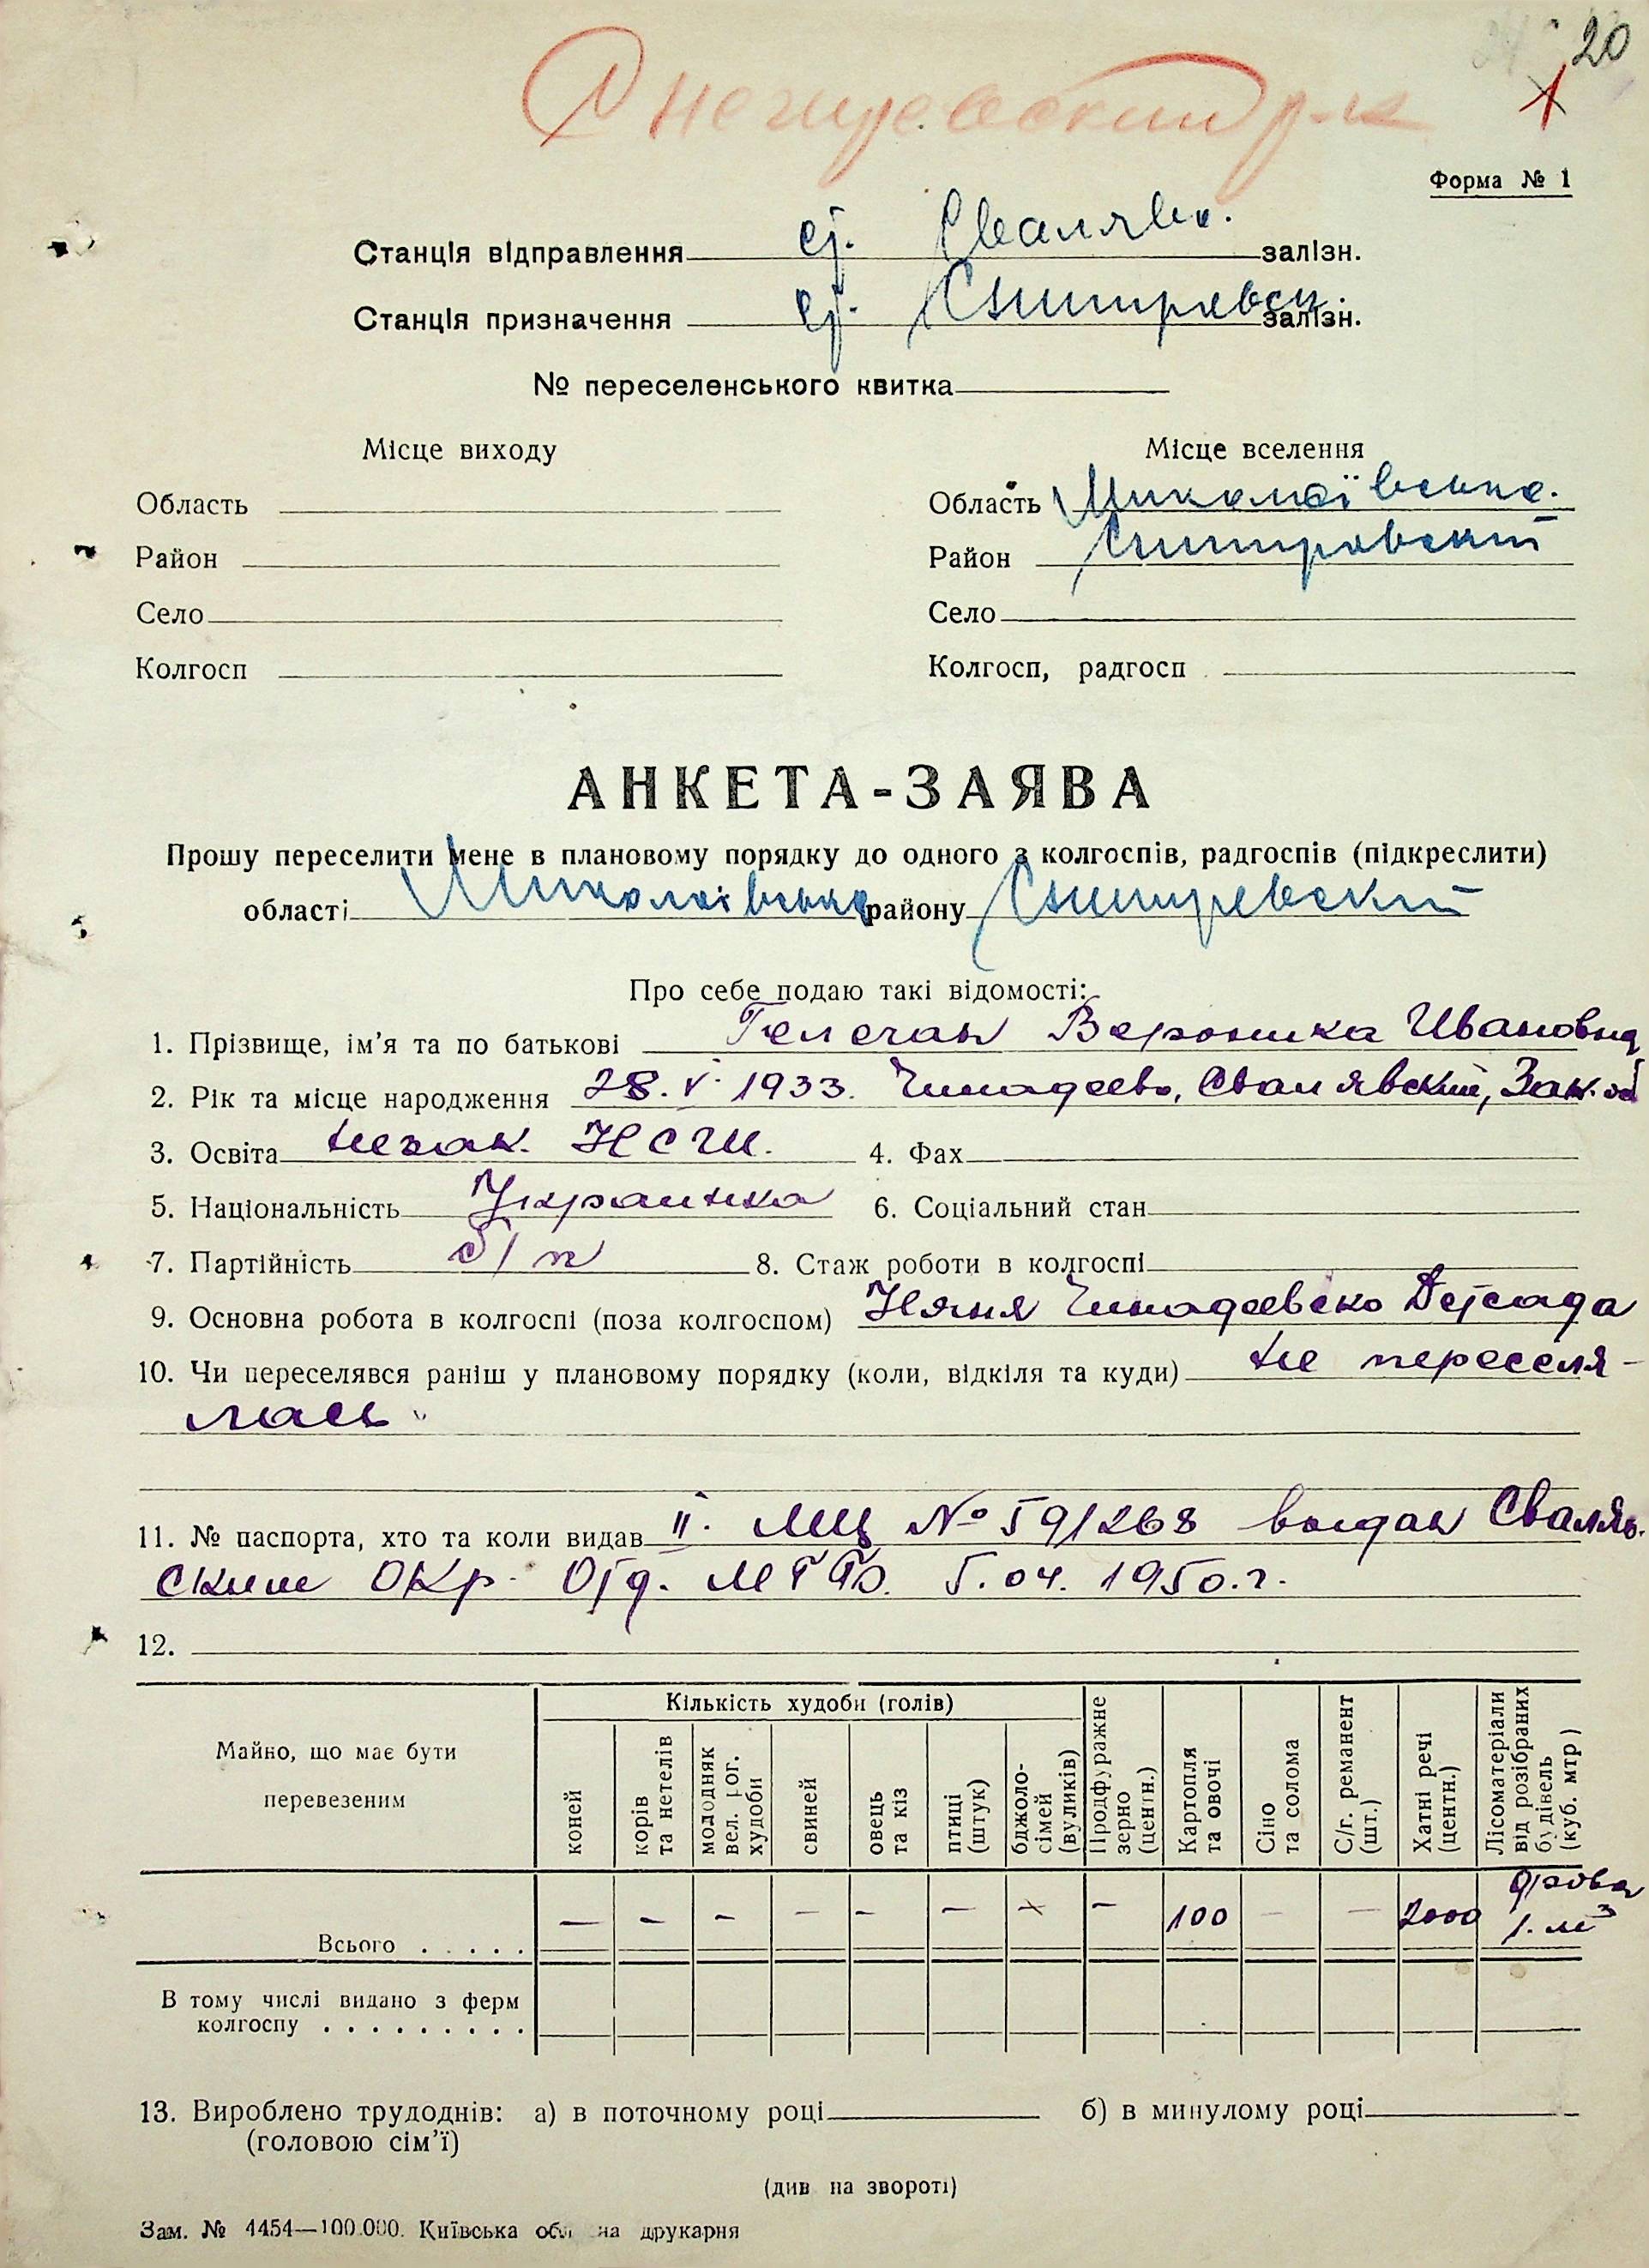 20
1
Снегиревский р-н
Форма № 1
Станція відправлення ст. Свалява. залізн.
Станція призначення ст. Снигиревск. залізн.
№ переселенського квитка
Місце виходу Місце вселення
Область Область Миколаївська.
Район Район Снигиревский
Село Село
Колгосп Колгосп, радгосп
АНКЕТА-ЗАЯВА
Прошу переселити мене в плановому порядку до одного з колгоспів, радгоспів (підкреслити)
області Миколаївська району Снигиревский
Про себе подаю такі відомості:
1. Прізвище, ім'я та по батькові Гелечан Вероника Ивановна
2. Рік та місце народження 28.V.1933. Чинадеево, Свалявский, Зак. об
3. Освіта незак. НСШ. 4. Фах
5. Національність Украинка 6. Соціальний стан
7. Партійність б/п 8. Стаж роботи в колгоспі
9. Основна робота в колгоспі (поза колгоспом) Няня Чинадеевско Детсада
10. Чи переселявся раніш у плановому порядку (коли, відкіля та куди) не переселя-
лась.
11. № паспорта, хто та коли видав II. МЦ № 591268 выдан Сваляв.
ским Окр. Отд. МГБ. 5.04.1950.г.
12.
Майно, що має бути перевезеним
Кількість худоби (голів)
коней
корів та нетелів
молодняк вел. рог. худоби
свиней
овець та кіз
птиці (штук)
бджоло-сімей (вуликів)
Продфуражне зерно (центн.)
Картопля та овочі
Сіно та солома
С/г. реманент (шт.)
Хатні речі (центн.)
Лісоматеріали від розібраних будівель (куб. мтр)
Всього . . . . . — — — — — — × — 100 — — 2000 дрова 1. м³
В тому числі видано з ферм
колгоспу . . . . . . . . .
13. Вироблено трудоднів: а) в поточному році б) в минулому році
(головою сім'ї)
(див на звороті)
Зам. № 4454—100.000. Київська друкарня